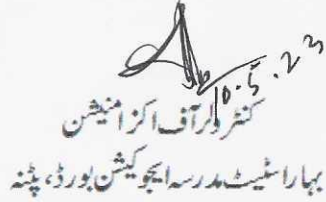 10.5.23
کنٹرولر آف اکزامنیشن
بہار اسٹیٹ مدرسہ ایجوکیشن بورڈ، پٹنہ